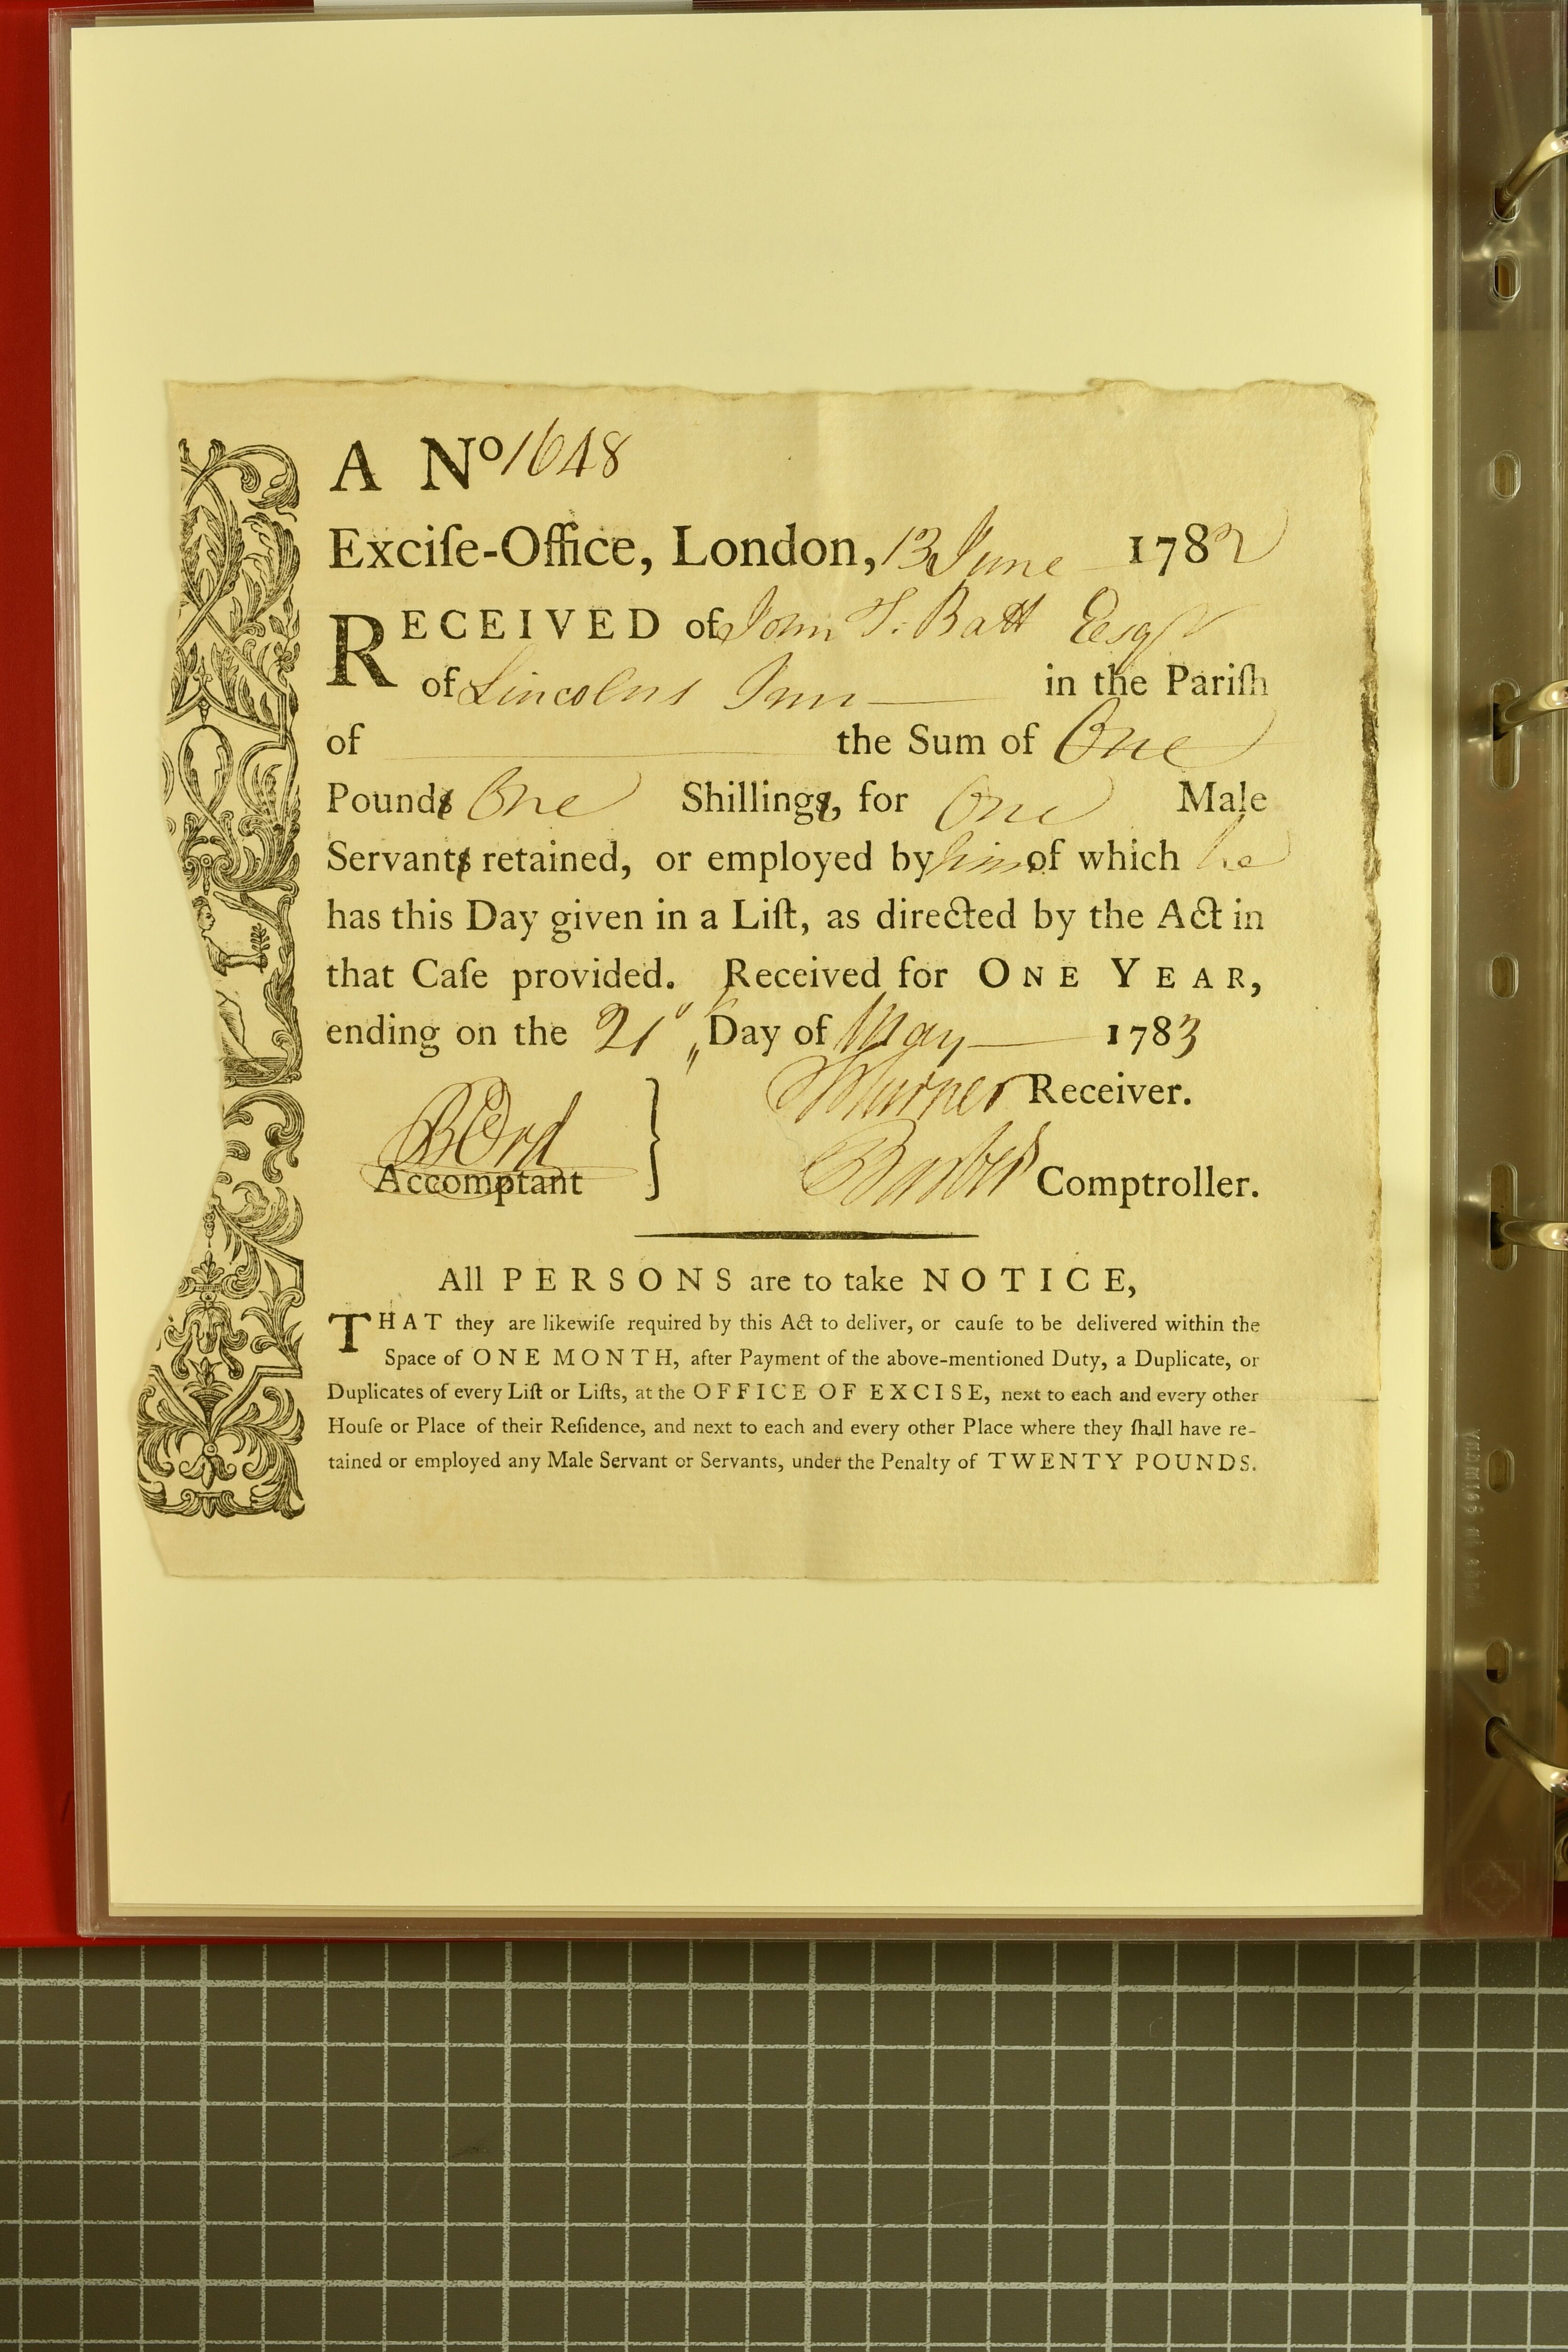 A Nº 1648
Exciſe-Office, London, 13 June 1782
RECEIVED of John T. Batt Esqr
of Lincolns Inn in the Pariſh
of the Sum of One
Pounds One Shillings, for One Male
Servants retained, or employed by him of which he
has this Day given in a Liſt, as directed by the Act in
that Caſe provided. Received for ONE YEAR,
ending on the 21st Day of May 1783
Receiver.
B Ord
Accomptant
Comptroller.
All PERSONS are to take NOTICE,
THAT they are likewiſe required by this Act to deliver, or cauſe to be delivered within the
Space of ONE MONTH, after Payment of the above-mentioned Duty, a Duplicate, or
Duplicates of every Liſt or Liſts, at the OFFICE OF EXCISE, next to each and every other
Houſe or Place of their Reſidence, and next to each and every other Place where they ſhall have re-
tained or employed any Male Servant or Servants, under the Penalty of TWENTY POUNDS.